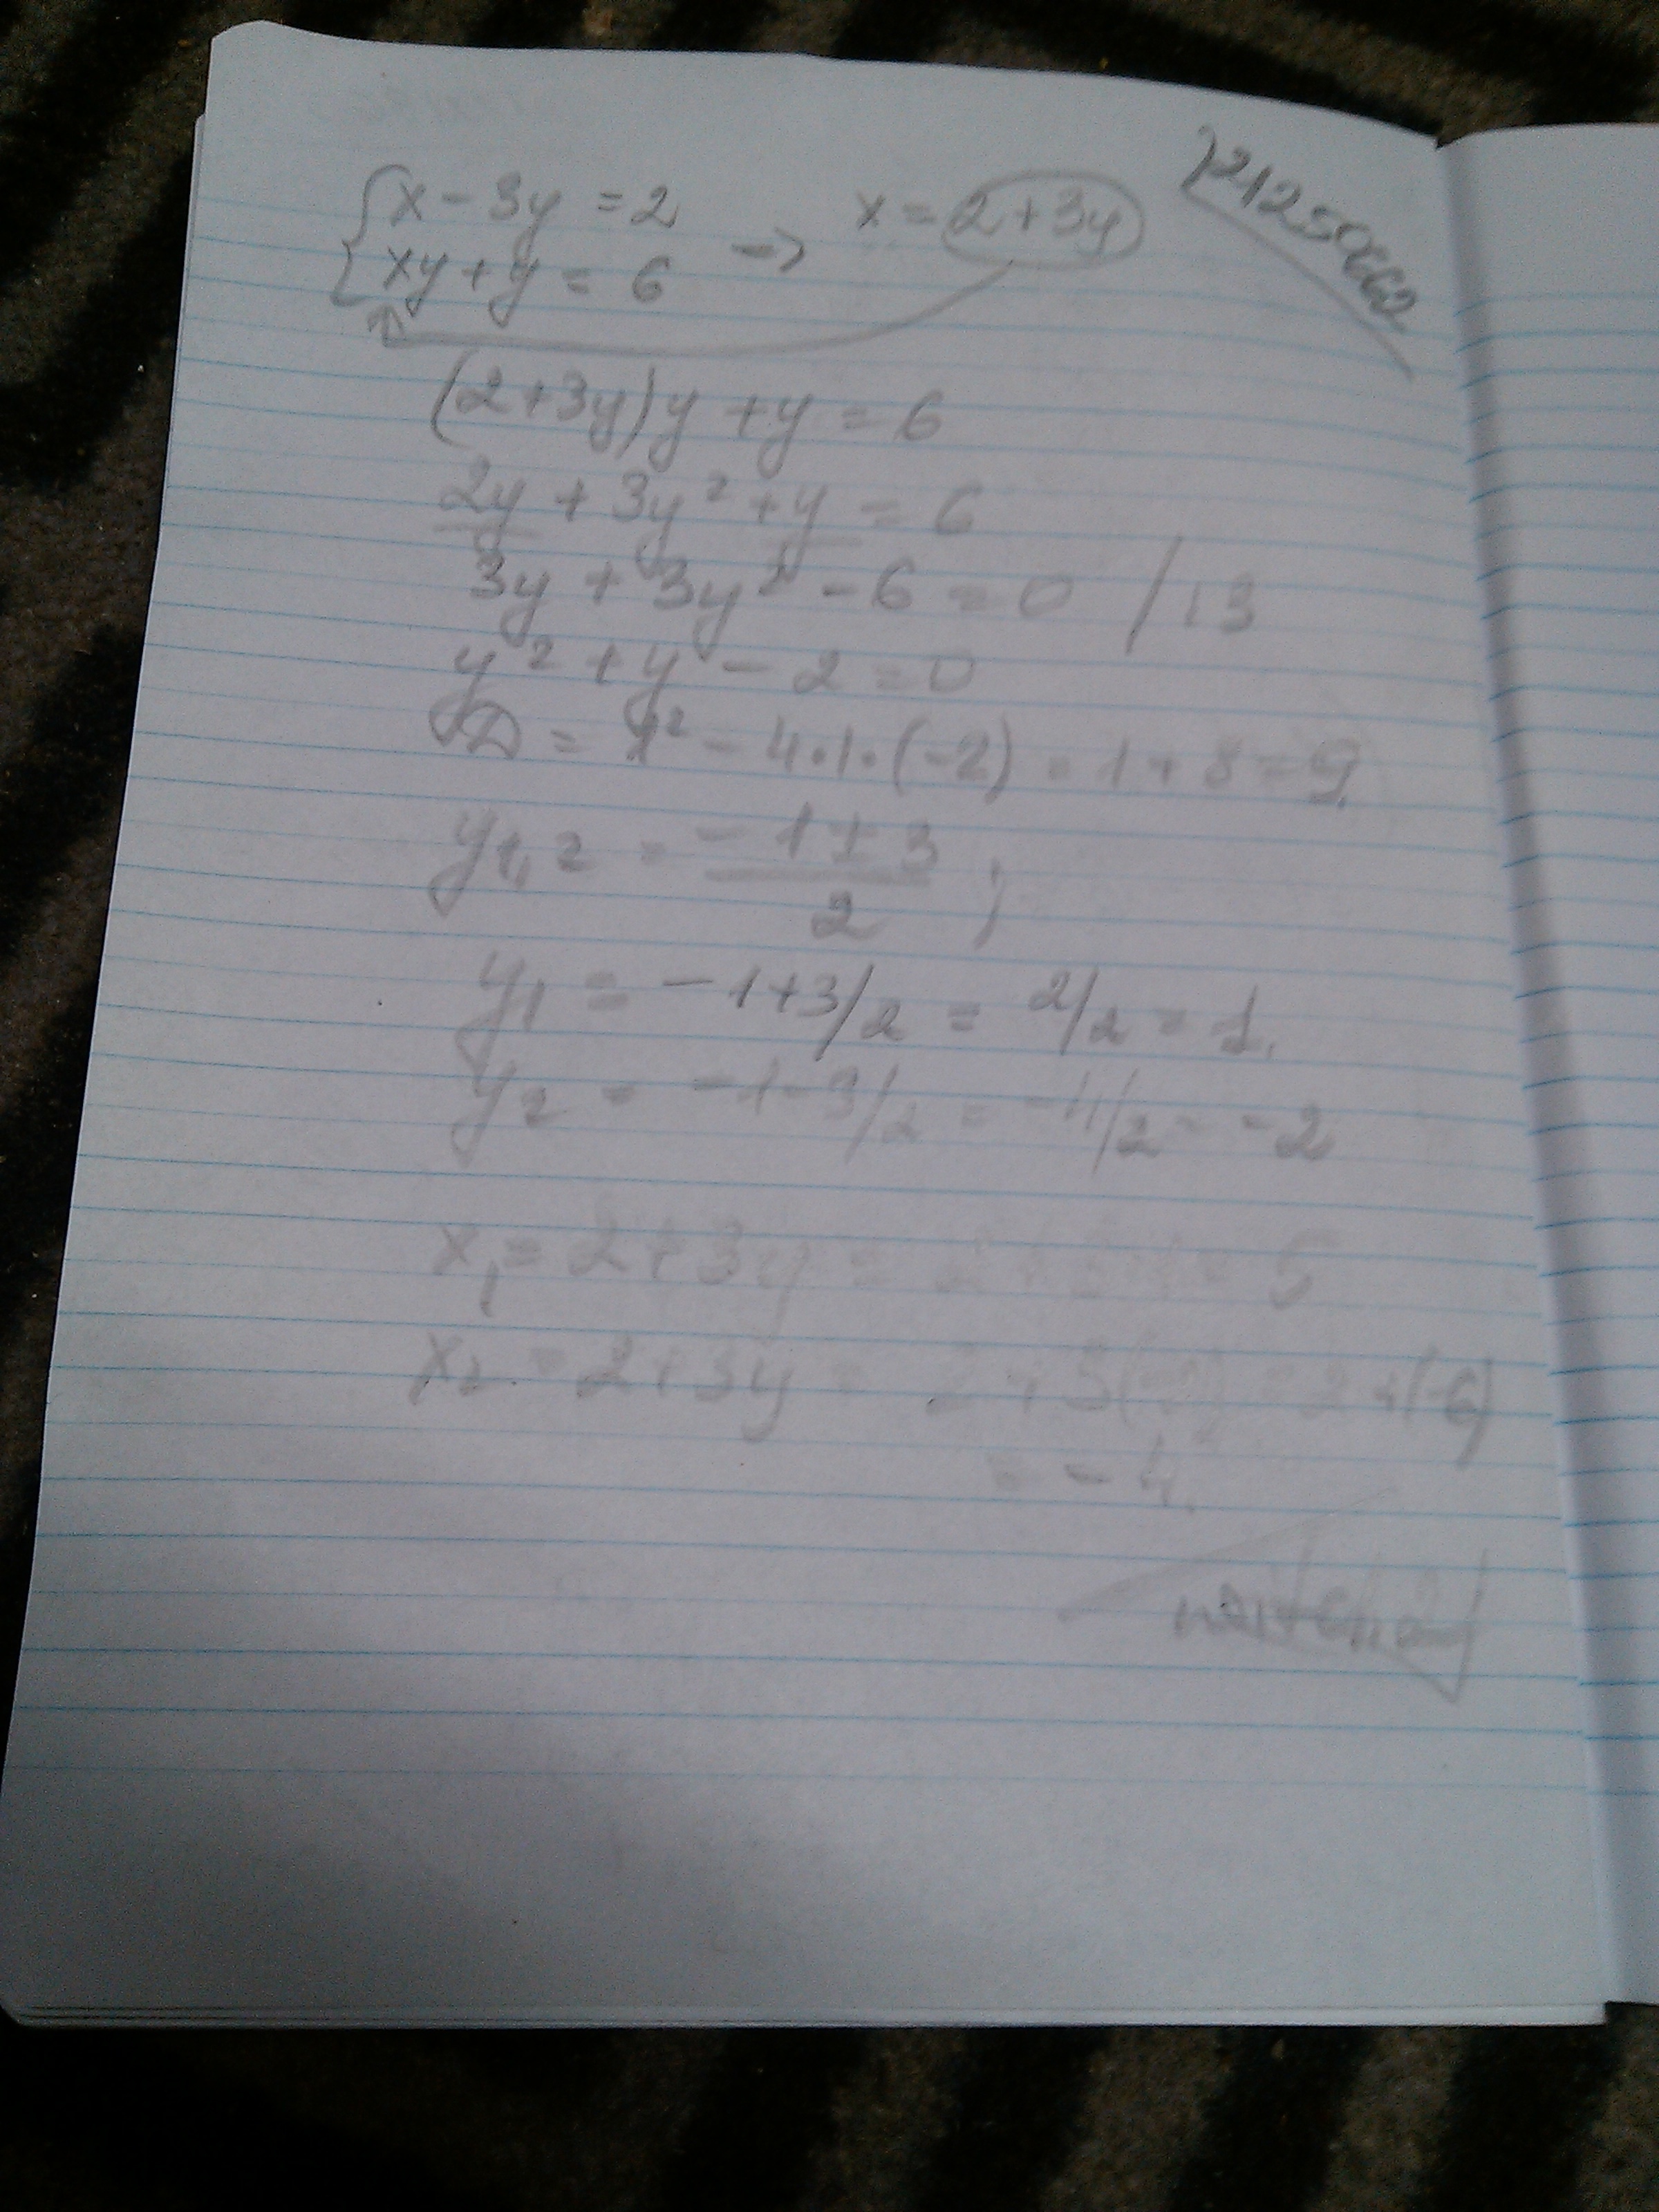 x - 3y = 2
xy + y = 6 -> x = 2 + 3y
21250662
(2+3y)y + y = 6
2y + 3y² + y = 6
3y + 3y² - 6 = 0 / :3
y² + y - 2 = 0
D = 1² - 4·1·(-2) = 1 + 8 = 9
y1,2 = -1 ± 3 / 2 ;
y1 = -1+3/2 = 2/2 = 1.
y2 = -1-3/2 = -4/2 = -2
x1 = 2 + 3y = 2 + 3·1 = 5
x2 = 2 + 3y = 2 + 3(-2) = 2 + (-6)
= -4.